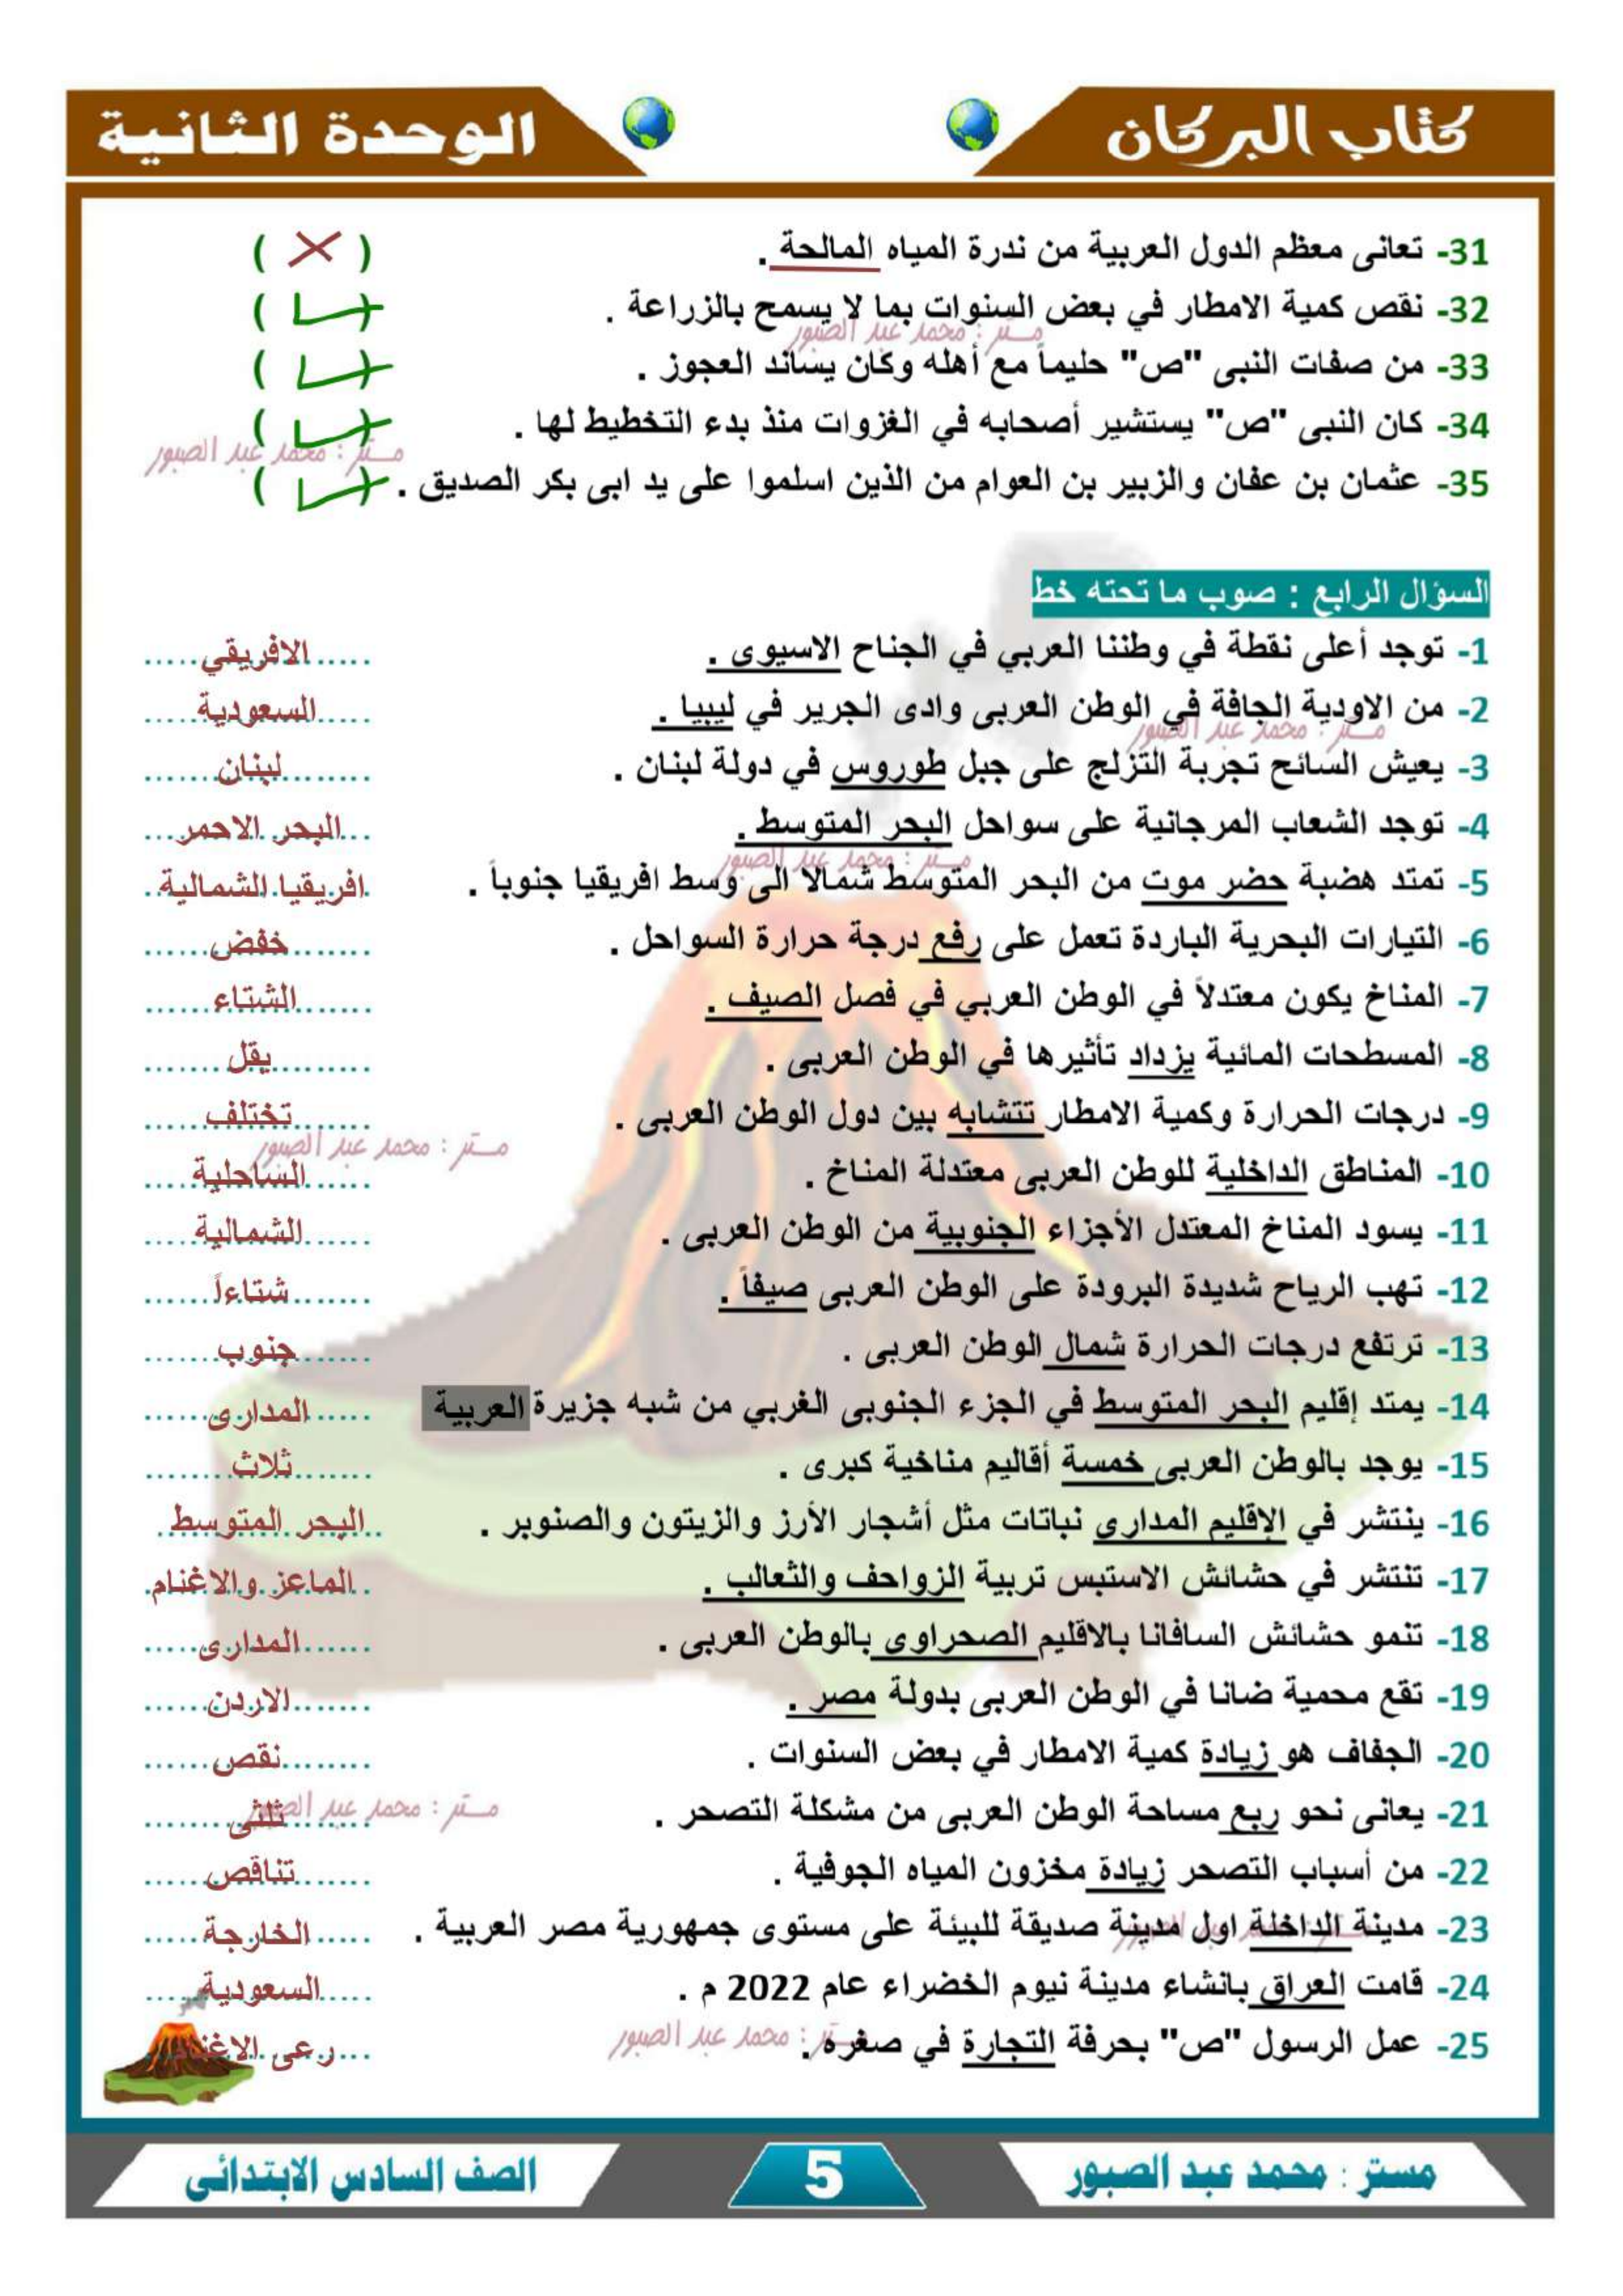 كتاب البركان
الوحدة الثانية
31- تعانى معظم الدول العربية من ندرة المياه المالحة . ( X )
32- نقص كمية الامطار في بعض السنوات بما لا يسمح بالزراعة . ( ✓ )
مستر : محمد عبد الصبور
33- من صفات النبى "ص" حليماً مع أهله وكان يساند العجوز . ( ✓ )
34- كان النبى "ص" يستشير أصحابه في الغزوات منذ بدء التخطيط لها . ( ✓ )
مستر : محمد عبد الصبور
35- عثمان بن عفان والزبير بن العوام من الذين اسلموا على يد ابى بكر الصديق . ( ✓ )
السؤال الرابع : صوب ما تحته خط
1- توجد أعلى نقطة في وطننا العربي في الجناح الاسيوى . الافريقي
2- من الاودية الجافة في الوطن العربى وادى الجرير في ليبيا . السعودية
مستر : محمد عبد الصبور
3- يعيش السائح تجربة التزلج على جبل طوروس في دولة لبنان . لبنان
4- توجد الشعاب المرجانية على سواحل البحر المتوسط . البحر الاحمر
مستر : محمد عبد الصبور
5- تمتد هضبة حضر موت من البحر المتوسط شمالا الى وسط افريقيا جنوباً . افريقيا الشمالية
6- التيارات البحرية الباردة تعمل على رفع درجة حرارة السواحل . خفض
7- المناخ يكون معتدلاً في الوطن العربي في فصل الصيف . الشتاء
8- المسطحات المائية يزداد تأثيرها في الوطن العربى . يقل
9- درجات الحرارة وكمية الامطار تتشابه بين دول الوطن العربى . تختلف
مستر : محمد عبد الصبور
10- المناطق الداخلية للوطن العربى معتدلة المناخ . الساحلية
11- يسود المناخ المعتدل الأجزاء الجنوبية من الوطن العربى . الشمالية
12- تهب الرياح شديدة البرودة على الوطن العربى صيفاً . شتاءاً
13- ترتفع درجات الحرارة شمال الوطن العربى . جنوب
14- يمتد إقليم البحر المتوسط في الجزء الجنوبى الغربي من شبه جزيرة العربية المدارى
15- يوجد بالوطن العربى خمسة أقاليم مناخية كبرى . ثلاث
16- ينتشر في الإقليم المداري نباتات مثل أشجار الأرز والزيتون والصنوبر . البحر المتوسط
17- تنتشر في حشائش الاستبس تربية الزواحف والثعالب . الماعز والاغنام
18- تنمو حشائش السافانا بالاقليم الصحراوى بالوطن العربى . المدارى
19- تقع محمية ضانا في الوطن العربى بدولة مصر . الاردن
20- الجفاف هو زيادة كمية الامطار في بعض السنوات . نقص
مستر : محمد عبد الصبور
21- يعانى نحو ربع مساحة الوطن العربى من مشكلة التصحر . ثلثى
22- من أسباب التصحر زيادة مخزون المياه الجوفية . تناقص
23- مدينة الداخلة اول مدينة صديقة للبيئة على مستوى جمهورية مصر العربية . الخارجة
مستر : محمد عبد الصبور
24- قامت العراق بانشاء مدينة نيوم الخضراء عام 2022 م . السعودية
25- عمل الرسول "ص" بحرفة التجارة في صغره . رعى الاغنام
مستر : محمد عبد الصبور
مستر : محمد عبد الصبور
5
الصف السادس الابتدائى